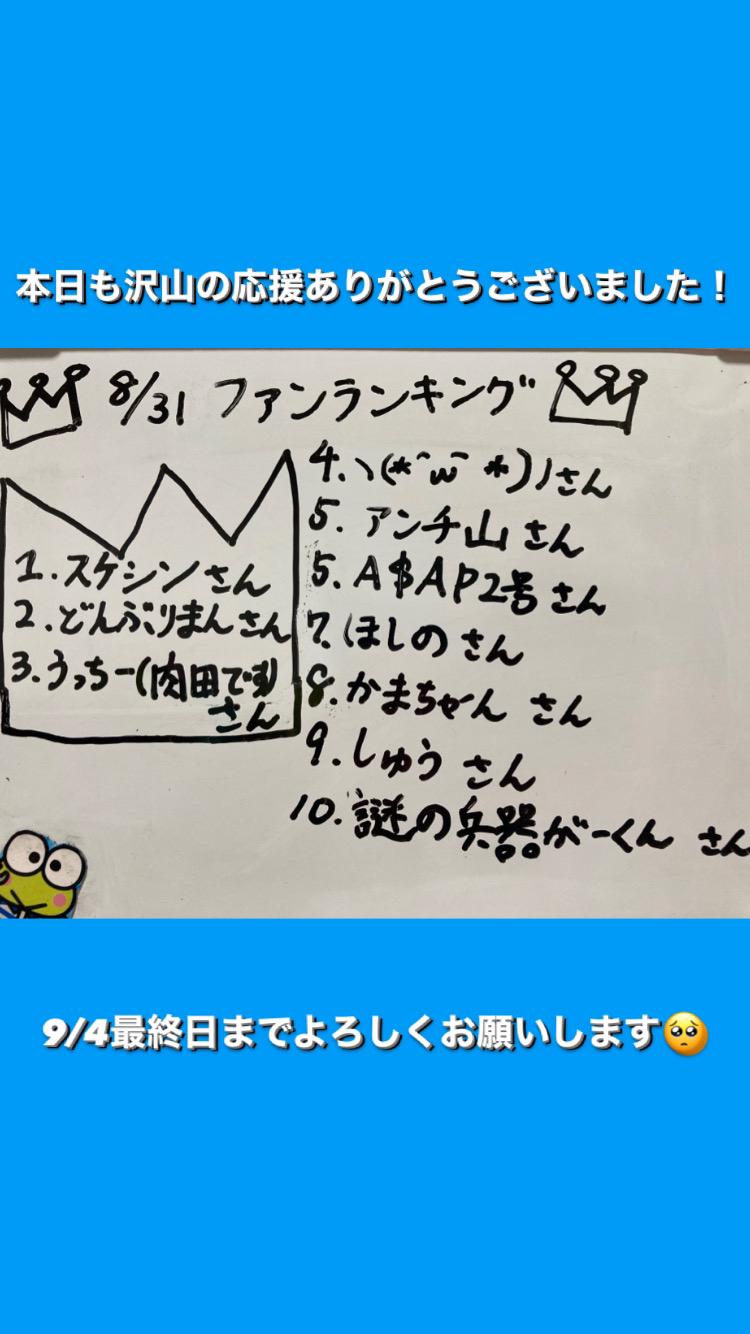 本日も沢山の応援ありがとうございました！
8/31 ファンランキング
1.スケシンさん
2.どんぶりまんさん
3.うっちー(肉田です)
さん
4.ヽ(*ˆωˆ*)ノさん
5.アンチ山さん
5.A$AP2号さん
7.ほしのさん
8.かまちゃんさん
9.しゅうさん
10.謎の兵器がーくん さん
9/4最終日までよろしくお願いします🥺